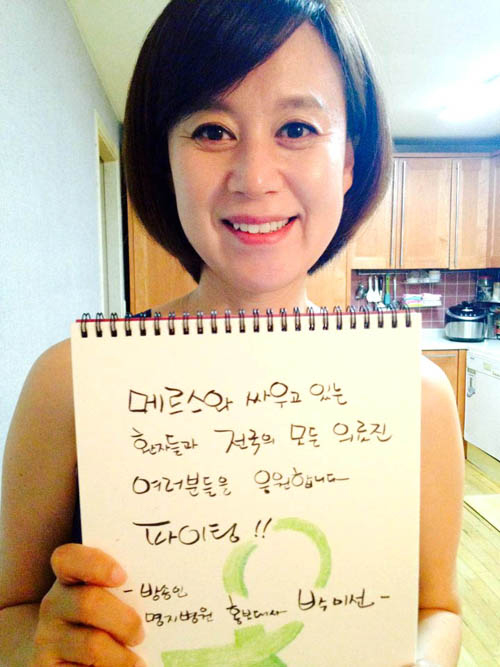 메르스와 싸우고 있는
환자들과 전국의 모든 의료진
여러분들을 응원합니다
파이팅 !!
- 방송인
명지병원 홍보대사 박미선 -